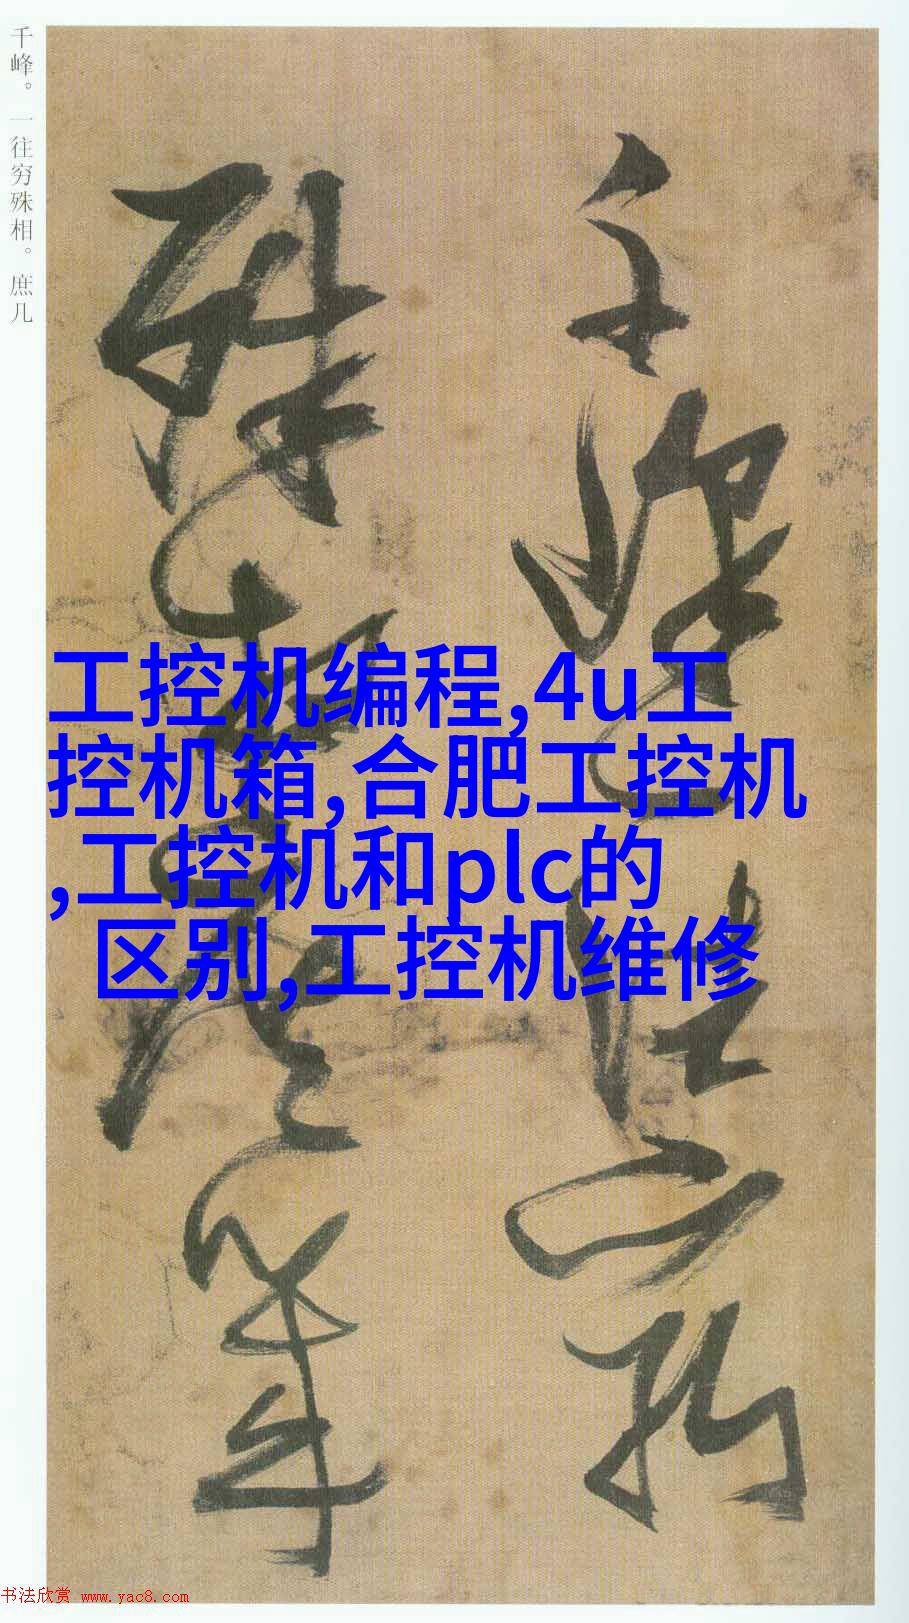 千峰。一往穷殊相。庶几
千峰一往穷
殊相庶几
工控机编程,4u工
控机箱,合肥工控机
,工控机和plc的
区别,工控机维修
书法欣赏 www.yac8.com